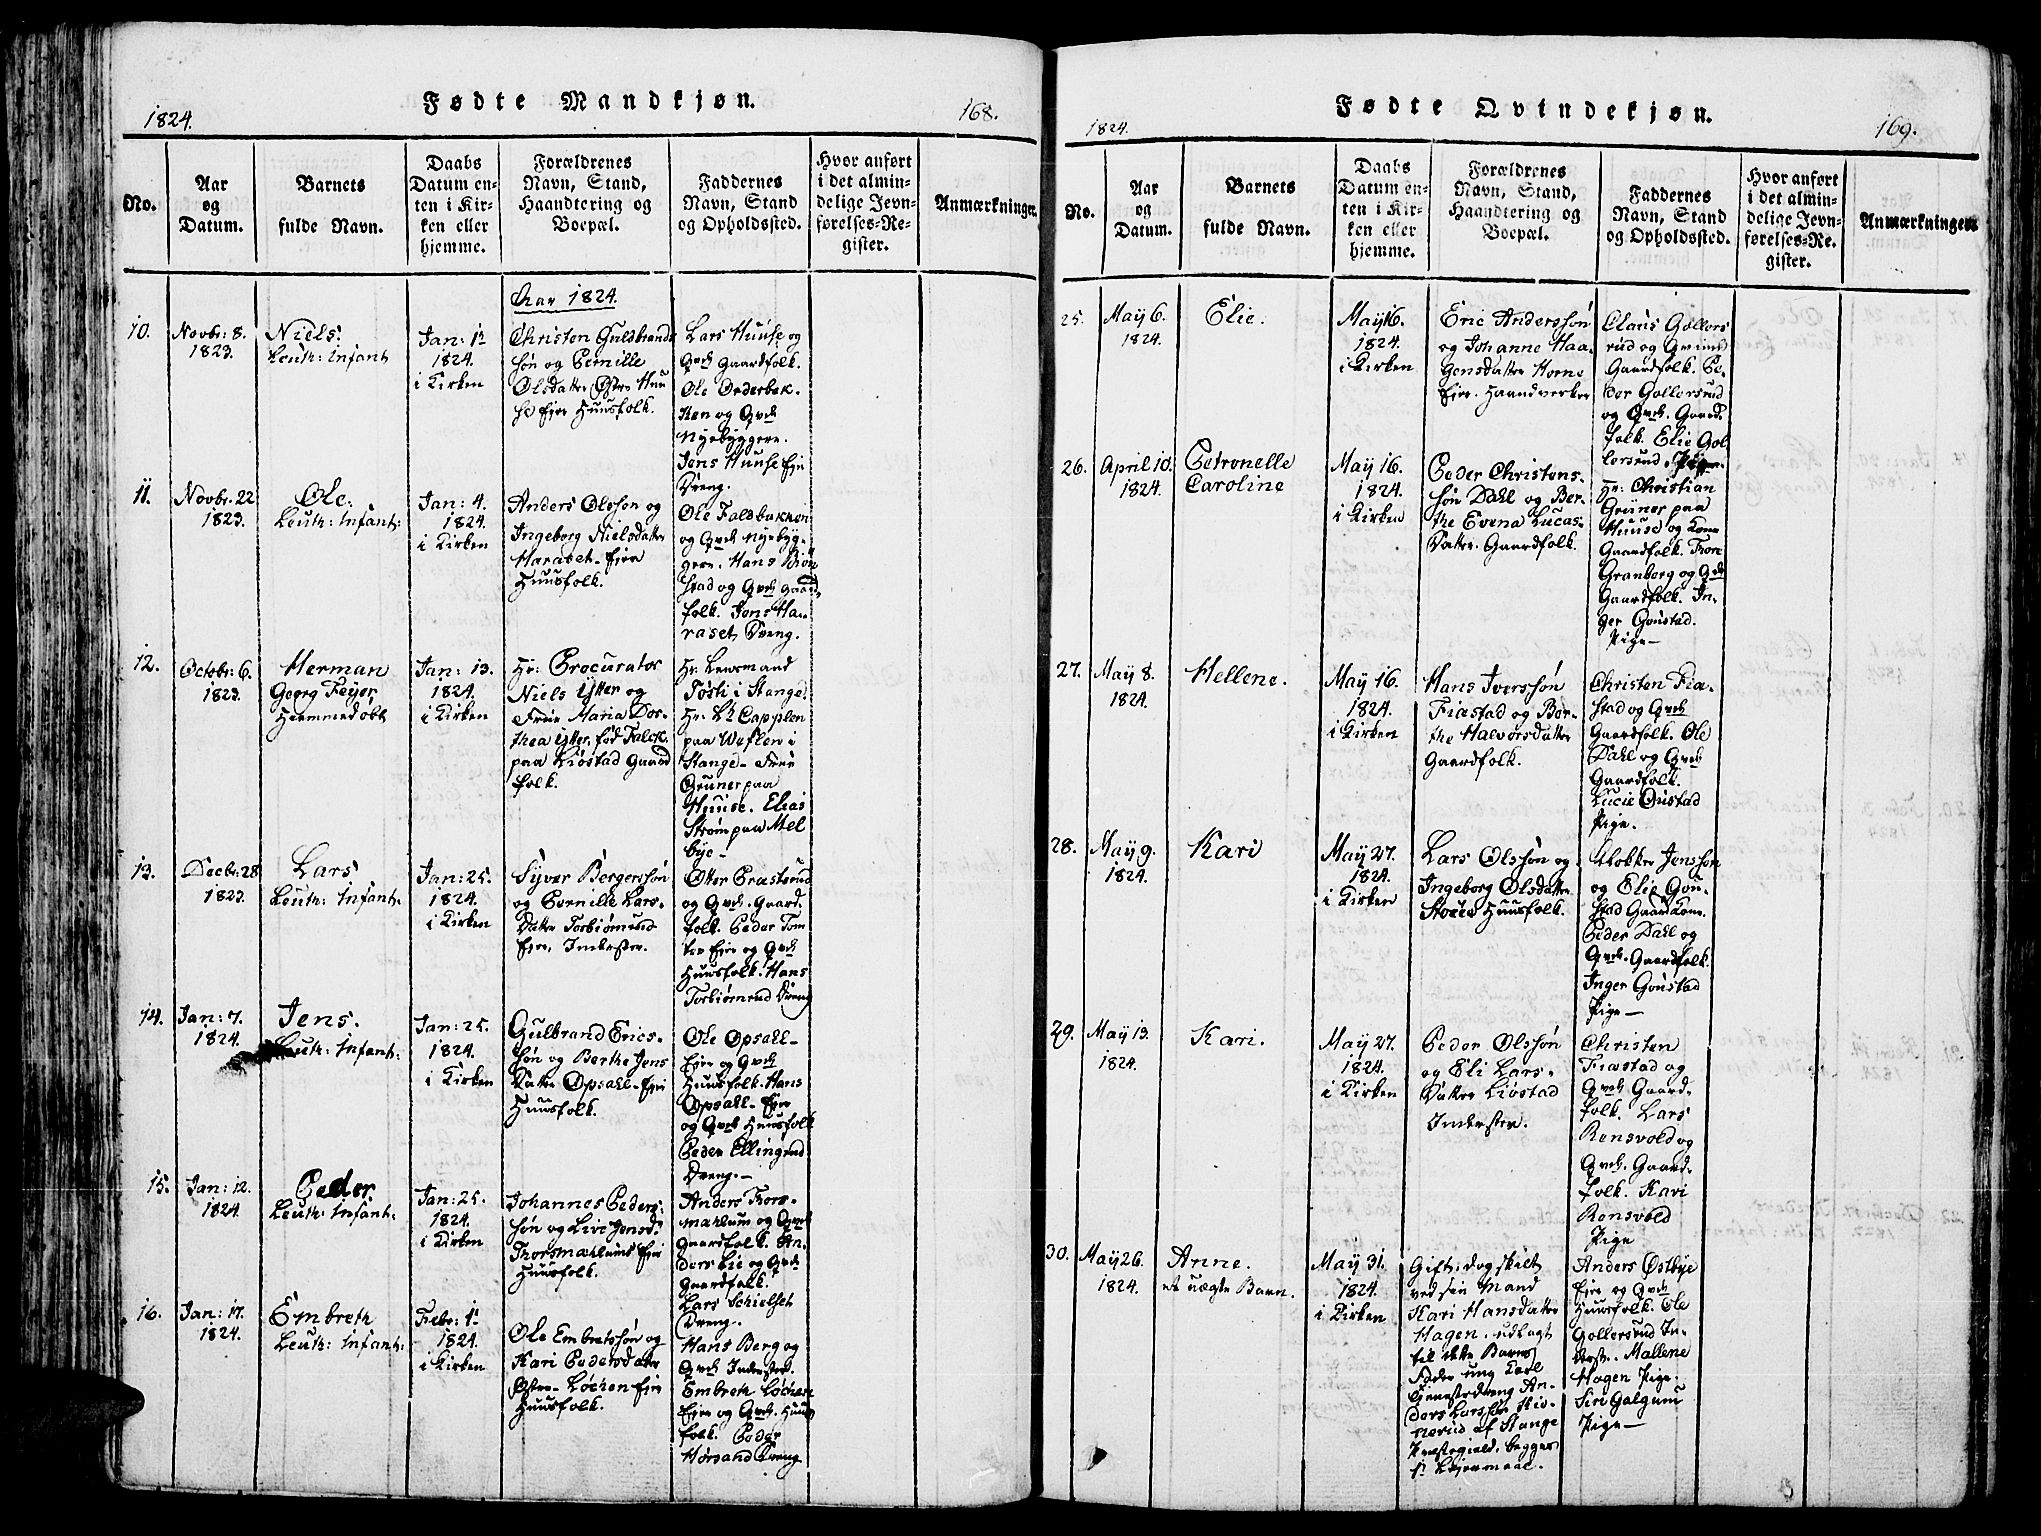 Fødte Mandkjøn.
1824.
168.
No.
Aar
og
Datum.
Barnets
fulde Navn.
Daabs
Datum en-
ten i Kir-
ken eller
hjemme.
Forældrenes
Navn, Stand,
Haandtering og
Boepæl.
Faddernes
Navn, Stand
og Opholdssted.
Hvor anført
i det almin-
delige Jevn-
førelses-Re-
gister.
Anmærkninger.
Aar 1824.
10.
Novbr: 8.
1823.
Niels.
Leuth: Infant
Jan: 1ste
1824.
i Kirken
Christen Guldbrands
søn og Pernille
Olsdatter Østre Huu
se Eje Huusfolk.
Lars Huuse og
Qvde Gaardfolk.
Ole Enderbak-
ken og Qvde
Nyebyggere.
Jens Huuse Eje
Dreng.
11.
Novbr. 22
1823.
Ole.
Leuth: Infant:
Jan: 4.
1824.
i Kirken
Anders Olssøn og
Ingeborg Nielsdatter
Haraset- Eje
Huusfolk.
Ole Faldbakken
og Qvde Nyebyg-
gere. Hans
stad og Qvde Gaard
folk. Jens Ha-
raset, Dreng.
12.
Octobr: 6.
1823.
Herman
Georg Feyer
Hiemmedøbt
Jan: 13.
1824.
i Kirken
Hr: Procurator
Niels Ytter og
Frue Maria Dor-
thea Ytter, fød Falck.
paa Liøstad Gaard
folk.
Hr: Lensmand
Tosti i Stange.
Hr: Lt Capplen
paa Weflen i
Stange- Frue
Gruner paa
Huuse. Elias
Strøm paa Mel
bye-
13.
Decbr. 28
1823.
Lars
Leuth: Infant:
Jan: 25.
1824.
i Kirken
Syver Bergerssøn
og Pernille Lars-
datter Torbiørnrud
Eje, Inderster.
Otter Præsterud
og Qvde. Gaard-
folk. Peder Tom
ter Eje og Qvde
Huusfolk. Hans
Torbiørnrud Dreng
14.
Jan: 7.
1824.
Jens.
Leuth: Infant:
Jan: 25.
1824.
i Kirken
Gulbrand Erics-
søn og Berthe Jens
datter Opsahl- Eje
Huusfolk.
Ole Opsahl-
Eje og Qvde
Huusfolk. Hans
Opsahl- Eje
og Qvde Huusfolk
Peder Ellingrud
Dreng.-
15.
Jan: 12.
1824.
Peder
Leuth: Infant:
Jan: 25.
1824.
i Kirken
Johannes Peders-
søn og Live Jensd:
Thorsmæhlums Eje
Huusfolk.
Anders Thors-
mæhlum og Qvde
Gaardfolk. An-
ders Lie og Qvde
Gaardfolk.
Lars Schielset
Dreng.
16.
Jan: 17.
1824.
Embreth
Leuth: Infant:
Febr: 1ste
1824.
i Kirken
Ole Embretssøn og
Kari Pedersdatter
Østre- Løchen Eje
Huusfolk.
Hans Berg og
Qvde Inderster.
Embreth Løchen
Eje og Qvde. Huus
folk. Peder
Hørsand Dreng
Fødte Qvindekjøn.
1824.
169.
No.
Aar
og
Datum.
Barnets
fulde Navn.
Daabs
Datum en-
ten i Kir-
ken eller
hjemme.
Forældrenes
Navn, Stand,
Haandtering og
Boepæl.
Faddernes
Navn, Stand
og Opholdssted.
Hvor anført
i det almin-
delige Jevn-
førelses-Re-
gister.
Anmærkninger.
25.
May 6.
1824.
Elie.
May 16.
1824.
i Kirken
Eric Anderssøn
og Johanne Haa-
gensdatter Horne
Eje. Haandverker
Claus Gollers
rud og Qvinde
Gaardfolk. Pe-
der Gollersrud
og Qvde. Gaard-
folk. Elie Gol
lersrud, Pige.
26.
April 10.
1824.
Petronelle
Caroline
May 16.
1824.
i Kirken
Peder Christens-
søn Dahl og Ber-
the Evena Lucas-
datter. Gaardfolk.
Hr: Christian
Gruner paa
Huuse og Kone
Gaardfolk. Tron
Granberg og Qvde
Gaardfolk. In-
ger Gonstad.
Pige-
27.
May 8.
1824.
Hellene.
May 16.
1824.
i Kirken
Hans Iverssøn
Fiæstad og Ber-
the Halvorsdatter
Gaardfolk.
Christen Fiæ-
stad og Qvde
Gaardfolk. Ole
Dahl og Qvde
Gaardfolk.
Lucie Onstad
Pige.
28.
May 9.
1824.
Kari
May 27.
1824.
i Kirken
Lars Olssøn og
Ingeborg Olsdatter
Huusfolk.
Jenssøn
og Elie Gon-
stad Gaardkone.
Peder Dahl og
Qvde. Gaardfolk.
Inger Gonstad
Pige-
29.
May 13.
1824.
Kari.
May 27.
1824.
i Kirken
Peder Olssøn
og Eli Lars-
datter Liøstad
Inderster.
Christen
Fiæstad og
Qvde Gaard-
folk. Lars
Rensvold og
Qvde. Gaard-
folk. Kari
Rensvold
Pige
30.
May 26.
1824.
Anne.
et uægte Barn.
May 31.
1824.
i Kirken
Gift: dog skilt
ved sin Mand
Kari Hansdatter
Hagen. udlagt
til dette Barns
Fader ung Carl
Tjenestedreng An-
ders Larssøn
af Stange
Præstegield. begges
1ste Leiermaal.
Anders Østbye
Eje og Qvde
Huusfolk. Ole
Gollersrud In-
derst. Mallene
Hagen Pige.
Siri Galgum
Pige-